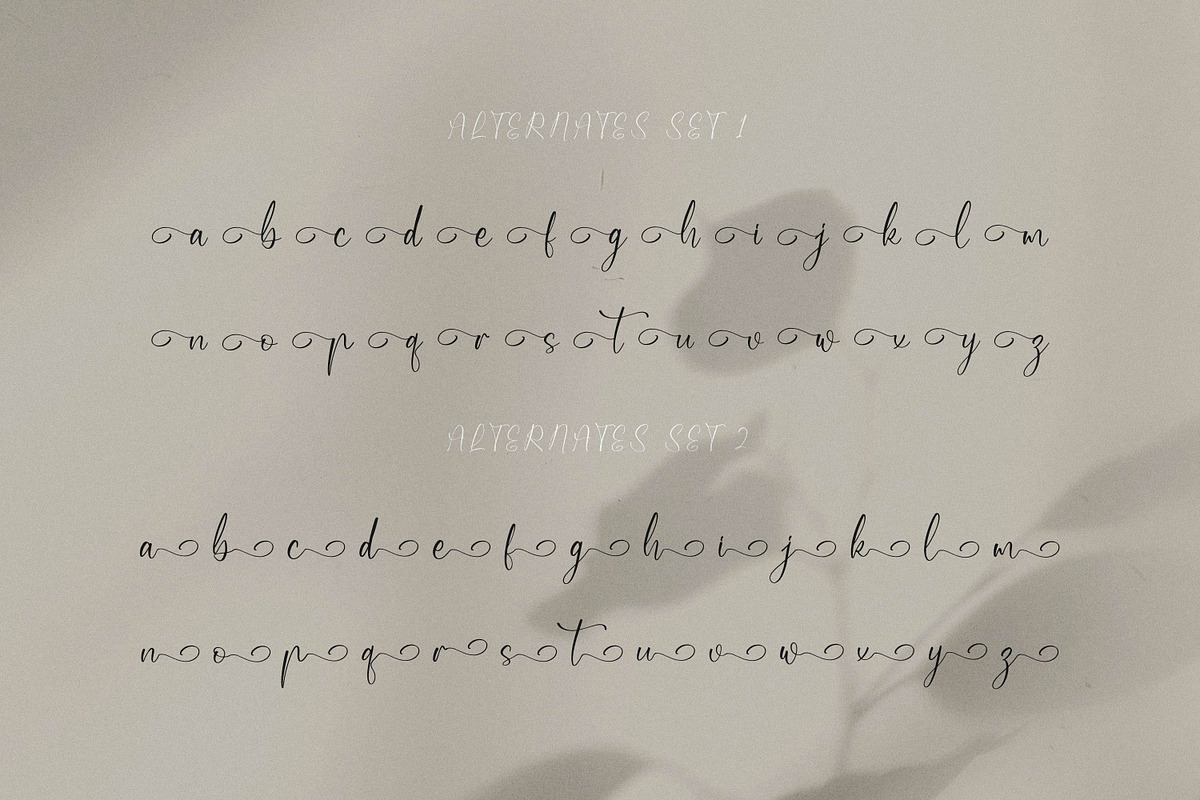 ALTERNATES SET 1
a b c d e f g h i j k l m
n o p q r s t u v w x y z
ALTERNATES SET 2
a b c d e f g h i j k l m
n o p q r s t u v w x y z